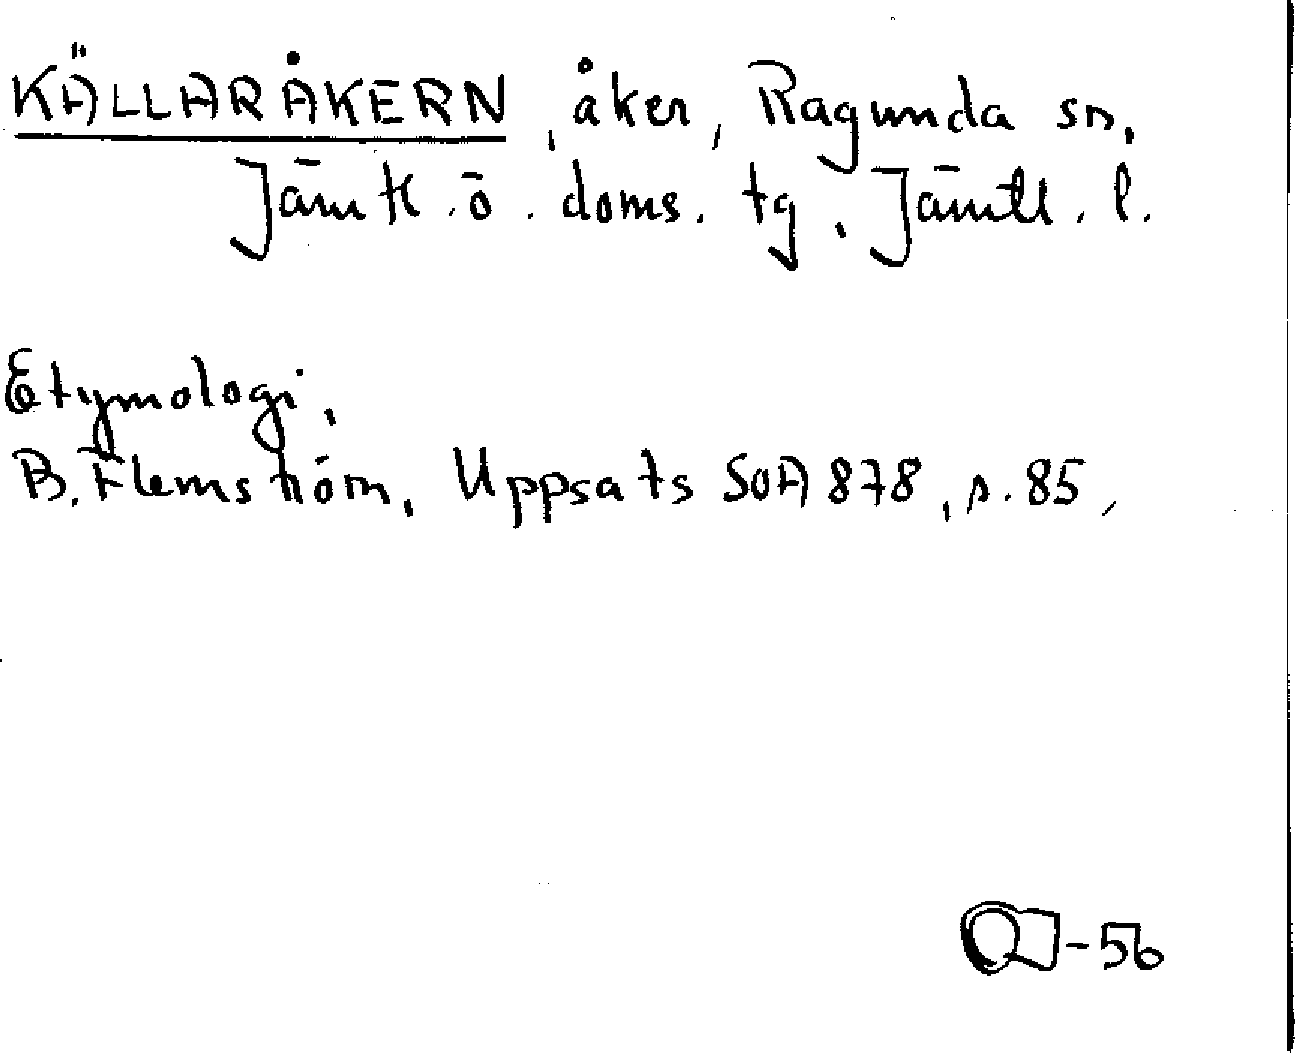 KÄLLARÅKERN, åker, Ragunda sn,
Jämtl. ö. doms. tg. Jämtl. l.
Etymologi,
B. Flemström, Uppsats SOA 878, s. 85,
-56